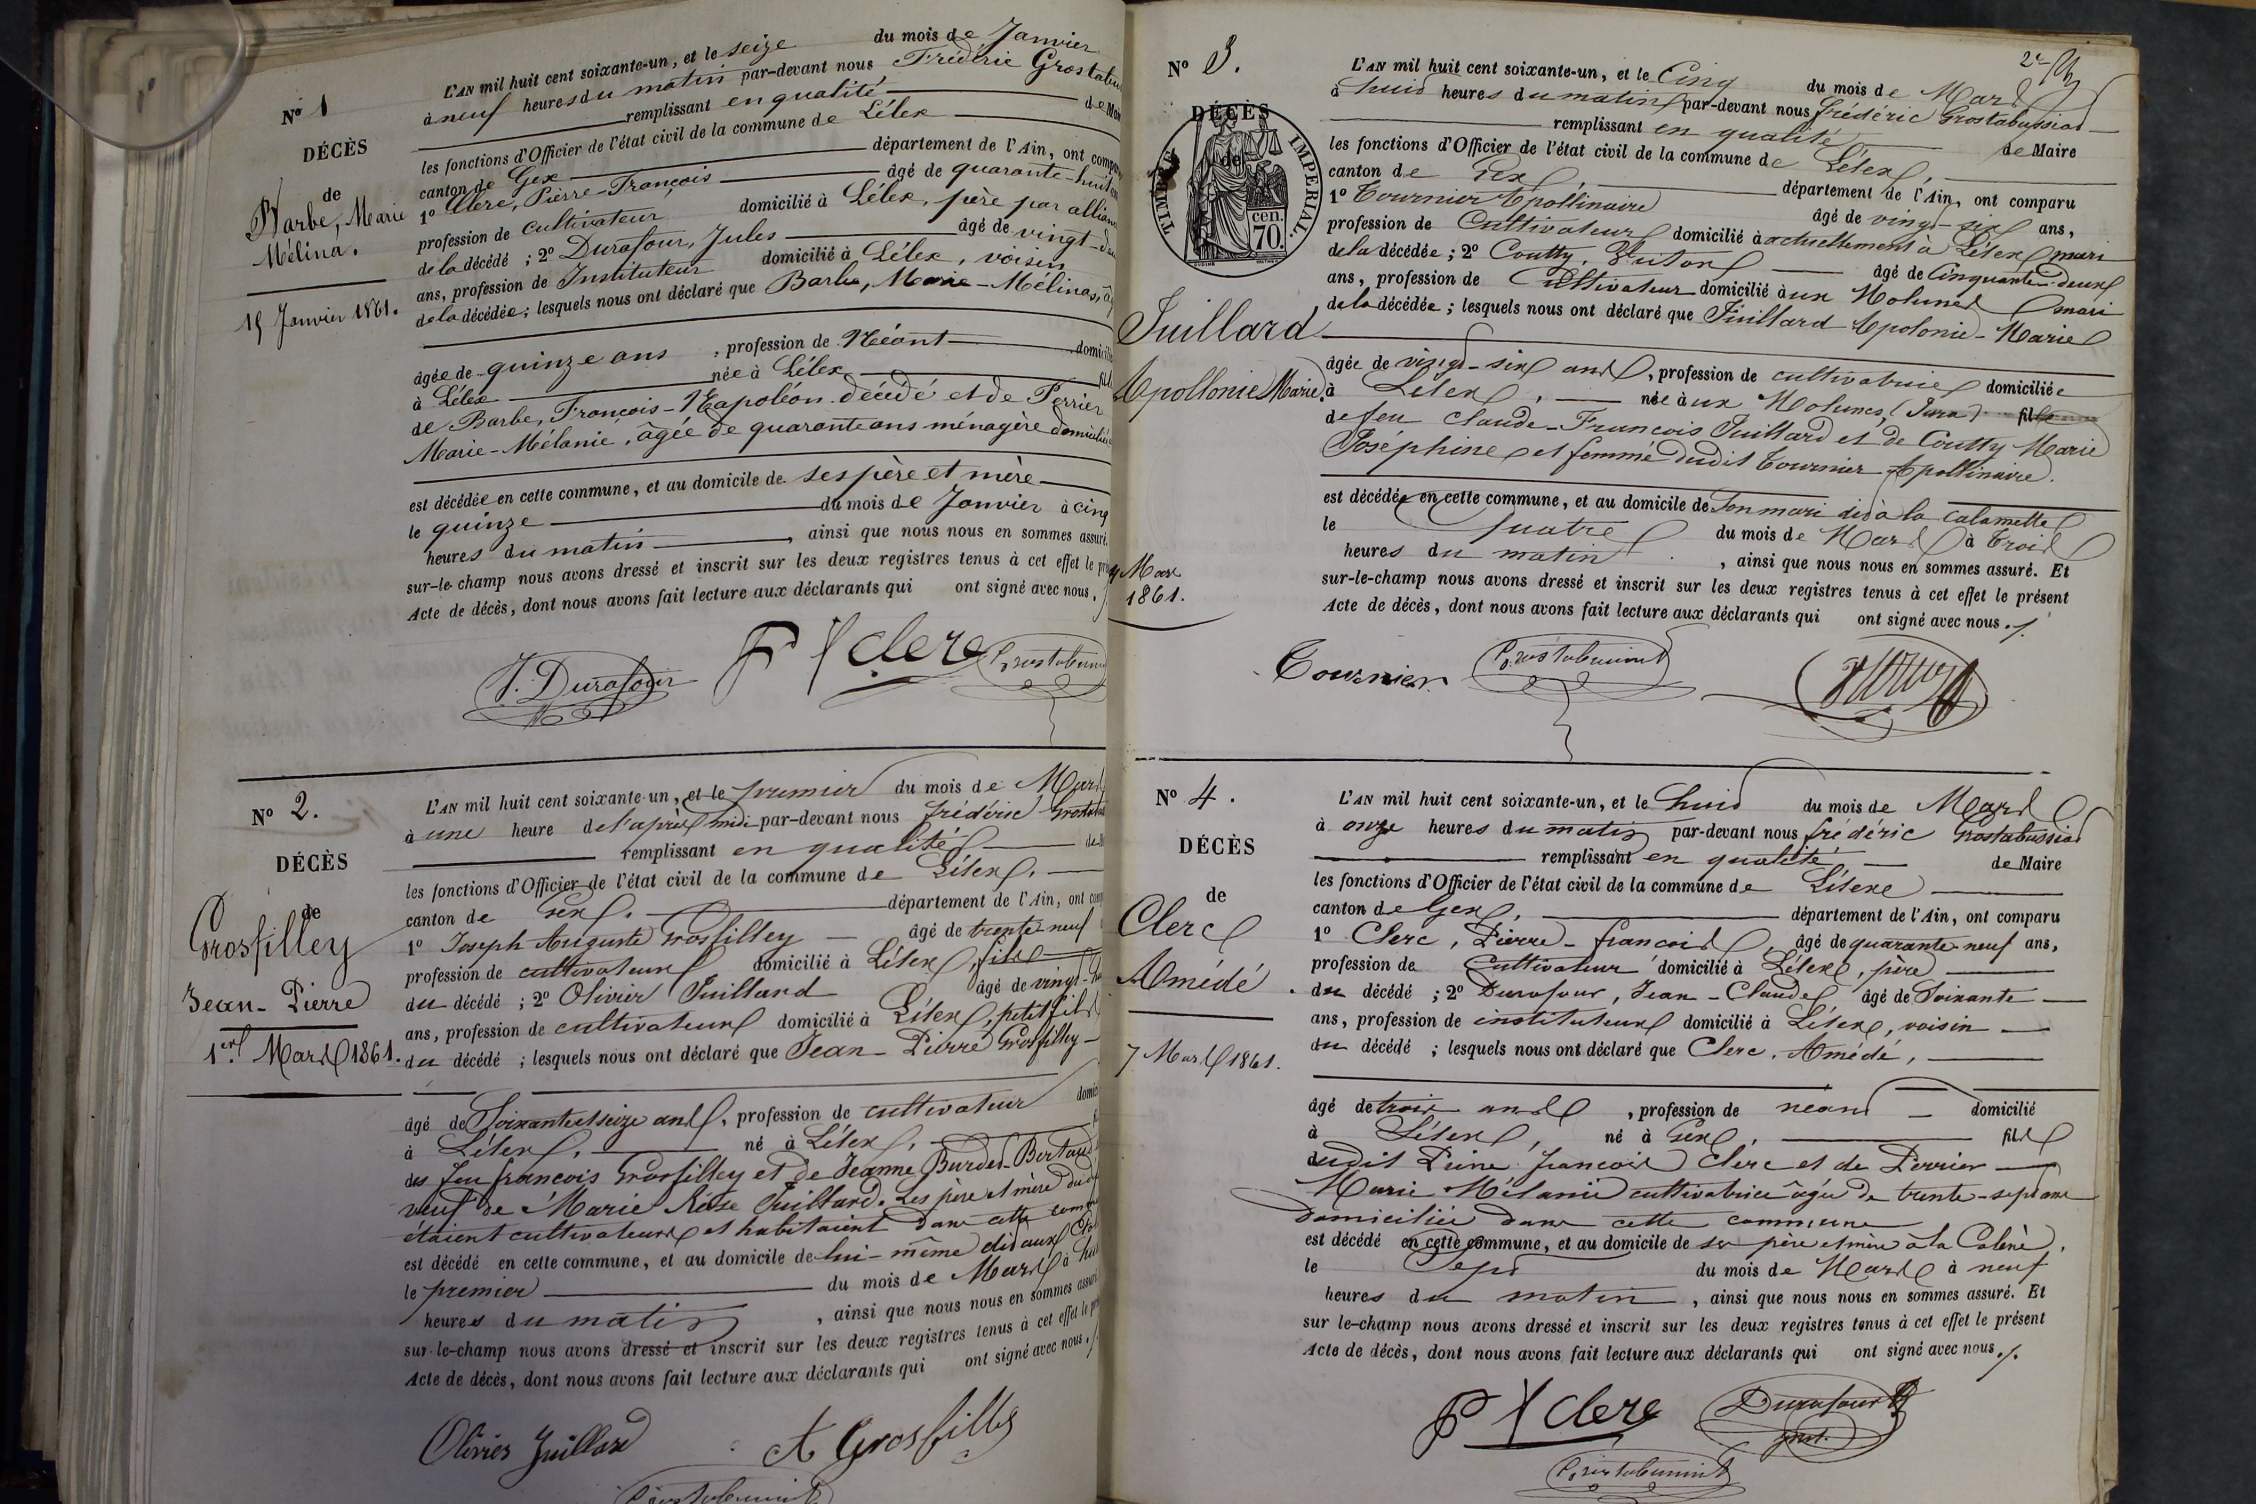 Nº 1
DÉCÈS
de
Barbe, Marie
Mélina.
15 Janvier 1861.
L'AN mil huit cent soixante-un, et le seize du mois de Janvier
à neuf heures du matin par-devant nous Frédéric Grostabu
remplissant en qualité de Mai
les fonctions d'Officier de l'état civil de la commune de Lélex
canton de Gex département de l'Ain, ont compa
1º Clerc, Pierre-François âgé de quarante-huit
profession de cultivateur domicilié à Lélex, père par allian
de la décédé ; 2º Durafour, Jules âgé de vingt-
ans, profession de Instituteur domicilié à Lélex, voisin
de la décédée ; lesquels nous ont déclaré que Barbe, Marie-Mélina,
âgée de quinze ans , profession de Néant domicili
à Lélex née à Lélex fil
de Barbe, François-Napoléon décédé et de Perrier
Marie-Mélanie, âgée de quarante ans ménagère domiciliée
est décédée en cette commune, et au domicile de ses père et mère
le quinze du mois de Janvier à cinq
heures du matin , ainsi que nous nous en sommes assuré.
sur-le champ nous avons dressé et inscrit sur les deux registres tenus à cet effet le pr
Acte de décès, dont nous avons fait lecture aux déclarants qui ont signé avec nous.
J. Durafour P f Clerc Grostabussiat
Nº 2.
DÉCÈS
de
Grosfilley
Jean-Pierre
1er Mars 1861.
L'AN mil huit cent soixante-un, et le premier du mois de Mars
à une heure de l'après midi par-devant nous frédéric Grostabu
remplissant en qualité de M
les fonctions d'Officier de l'état civil de la commune de Lélex.
canton de Gex. département de l'Ain, ont comp
1º Joseph Auguste Grosfilley âgé de trente-neuf
profession de cultivateur domicilié à Lélex, fils
du décédé ; 2º Olivier Juillard âgé de vingt-
ans, profession de cultivateur domicilié à Lélex, petit fils
du décédé ; lesquels nous ont déclaré que Jean-Pierre Grosfilley
âgé de Soixante et seize ans, profession de cultivateur domic
à Lélex, né à Lélex,
des feu françois Grosfilley et de Jeanne Burdet-Bertaud
veuf de Marie Rose Juillard. Les père et mère du d
étaient cultivateurs et habitaient dans cette comm
est décédé en cette commune, et au domicile de lui-même dit aux
le premier du mois de Mars à hui
heures du matin , ainsi que nous nous en sommes assuré
sur-le-champ nous avons dressé et inscrit sur les deux registres tenus à cet effet le pr
Acte de décès, dont nous avons fait lecture aux déclarants qui ont signé avec nous.
Olivier Juillard A Grosfilley
Grostabussiat
2e
Nº 3.
DÉCÈS
de
TIMBRE IMPERIAL.
cen.
70.
Juillard
Apollonie Marie.
4 Mars
1861.
L'AN mil huit cent soixante-un, et le Cinq du mois de Mars
à huit heures du matin par-devant nous frédéric Grostabussiat
remplissant en qualité de Maire
les fonctions d'Officier de l'état civil de la commune de Lélex,
canton de Gex, département de l'Ain, ont comparu
1º Tournier Apollinaire âgé de vingt-six ans,
profession de Cultivateur domicilié à actuellement à Lélex mari
de la décédée ; 2º Coutty, âgé de Cinquante-deux
ans, profession de Cultivateur domicilié à ux Molunes mari
de la décédée ; lesquels nous ont déclaré que Juillard Apolonie-Marie
âgée de vingt-six ans, profession de cultivatrice domiciliée
à Lélex, née à ux Molunes, (Jura) fille
de feu Claude-François Juillard et de Coutty Marie
Josephine et femme dudit Tournier Apollinaire.
est décédée en cette commune, et au domicile de Son mari dit à la calamette
le quatre du mois de Mars à trois
heures du matin , ainsi que nous nous en sommes assuré. Et
sur-le-champ nous avons dressé et inscrit sur les deux registres tenus à cet effet le présent
Acte de décès, dont nous avons fait lecture aux déclarants qui ont signé avec nous.
Tournier Grostabussiat
Nº 4.
DÉCÈS
de
Clerc
Amédé
7 Mars 1861.
L'AN mil huit cent soixante-un, et le huit du mois de Mars
à onze heures du matin par-devant nous frédéric Grostabussiat
remplissant en qualité de Maire
les fonctions d'Officier de l'état civil de la commune de Lélexe
canton de Gex, département de l'Ain, ont comparu
1º Clerc, Pierre-françois, âgé de quarante-neuf ans,
profession de Cultivateur domicilié à Lélex, père
du décédé ; 2º Durafour, Jean-Claude, âgé de Soixante
ans, profession de instituteur domicilié à Lélex, voisin
du décédé ; lesquels nous ont déclaré que Clerc, Amédé,
âgé de trois ans , profession de neant domicilié
à Lélex, né à Gex, fils
dudit Peirre françois Clerc et de Perrier
Marie Mélanie cultivatrice âgée de trente-sept ans
domiciliée dans cette commune
est décédé en cette commune, et au domicile de ses père et mère à la
le Sept du mois de Mars à neuf
heures du matin , ainsi que nous nous en sommes assuré. Et
sur le-champ nous avons dressé et inscrit sur les deux registres tenus à cet effet le présent
Acte de décès, dont nous avons fait lecture aux déclarants qui ont signé avec nous.
P f Clerc Durafour
inst.
Grostabussiat